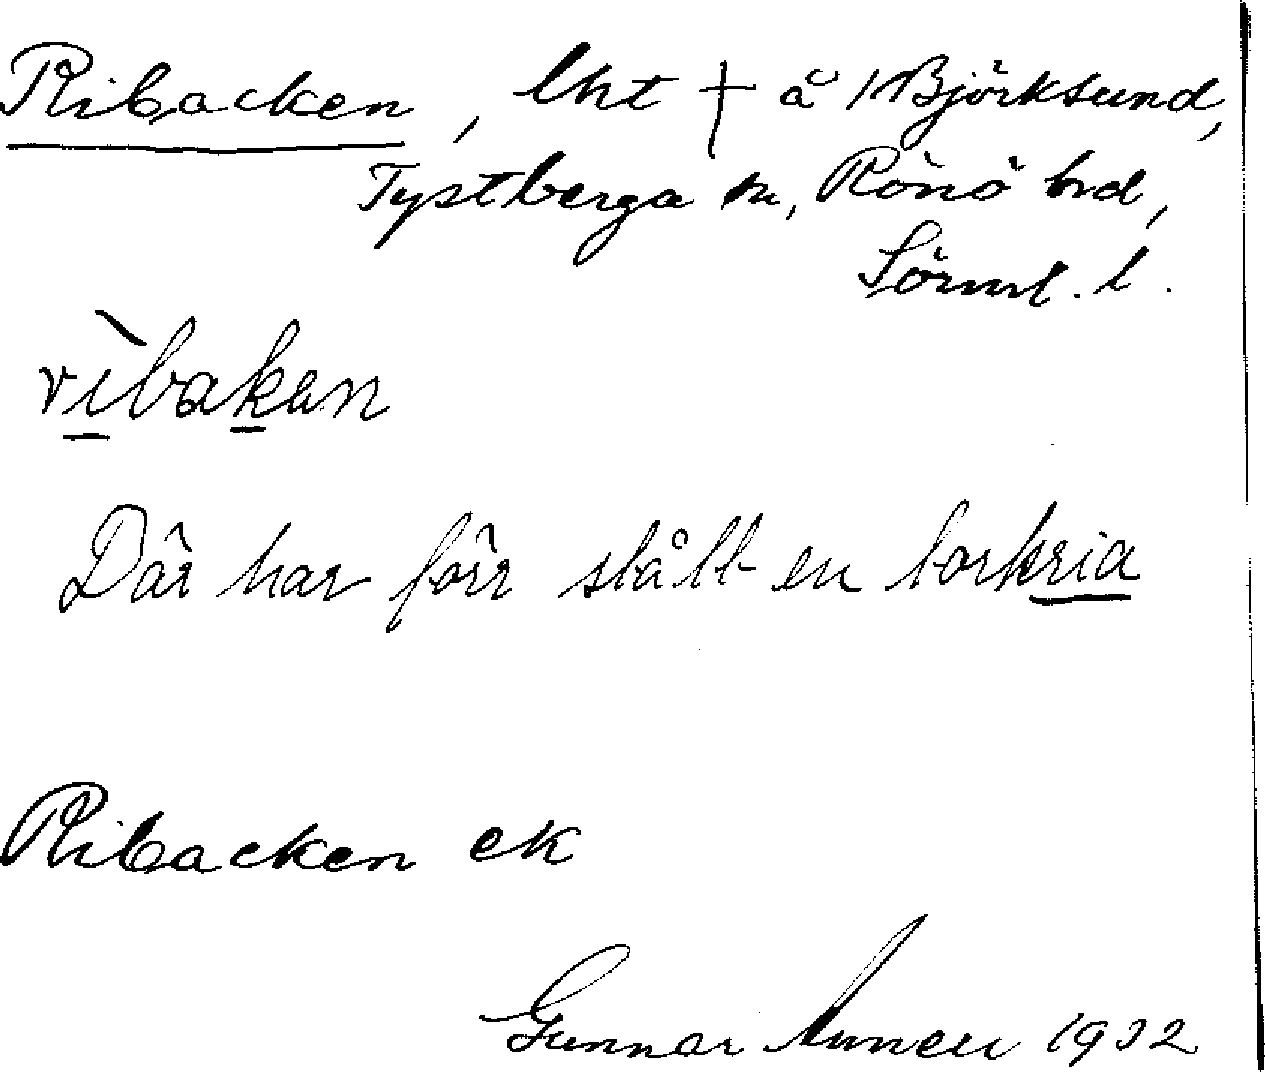 Ribacken, lht † å 1 Björksund,
Tystberga sn, Rönö hd,
Sörml. l.
rìbakən
Där har förr stått en torkria
Ribacken ek
Gunnar 1932